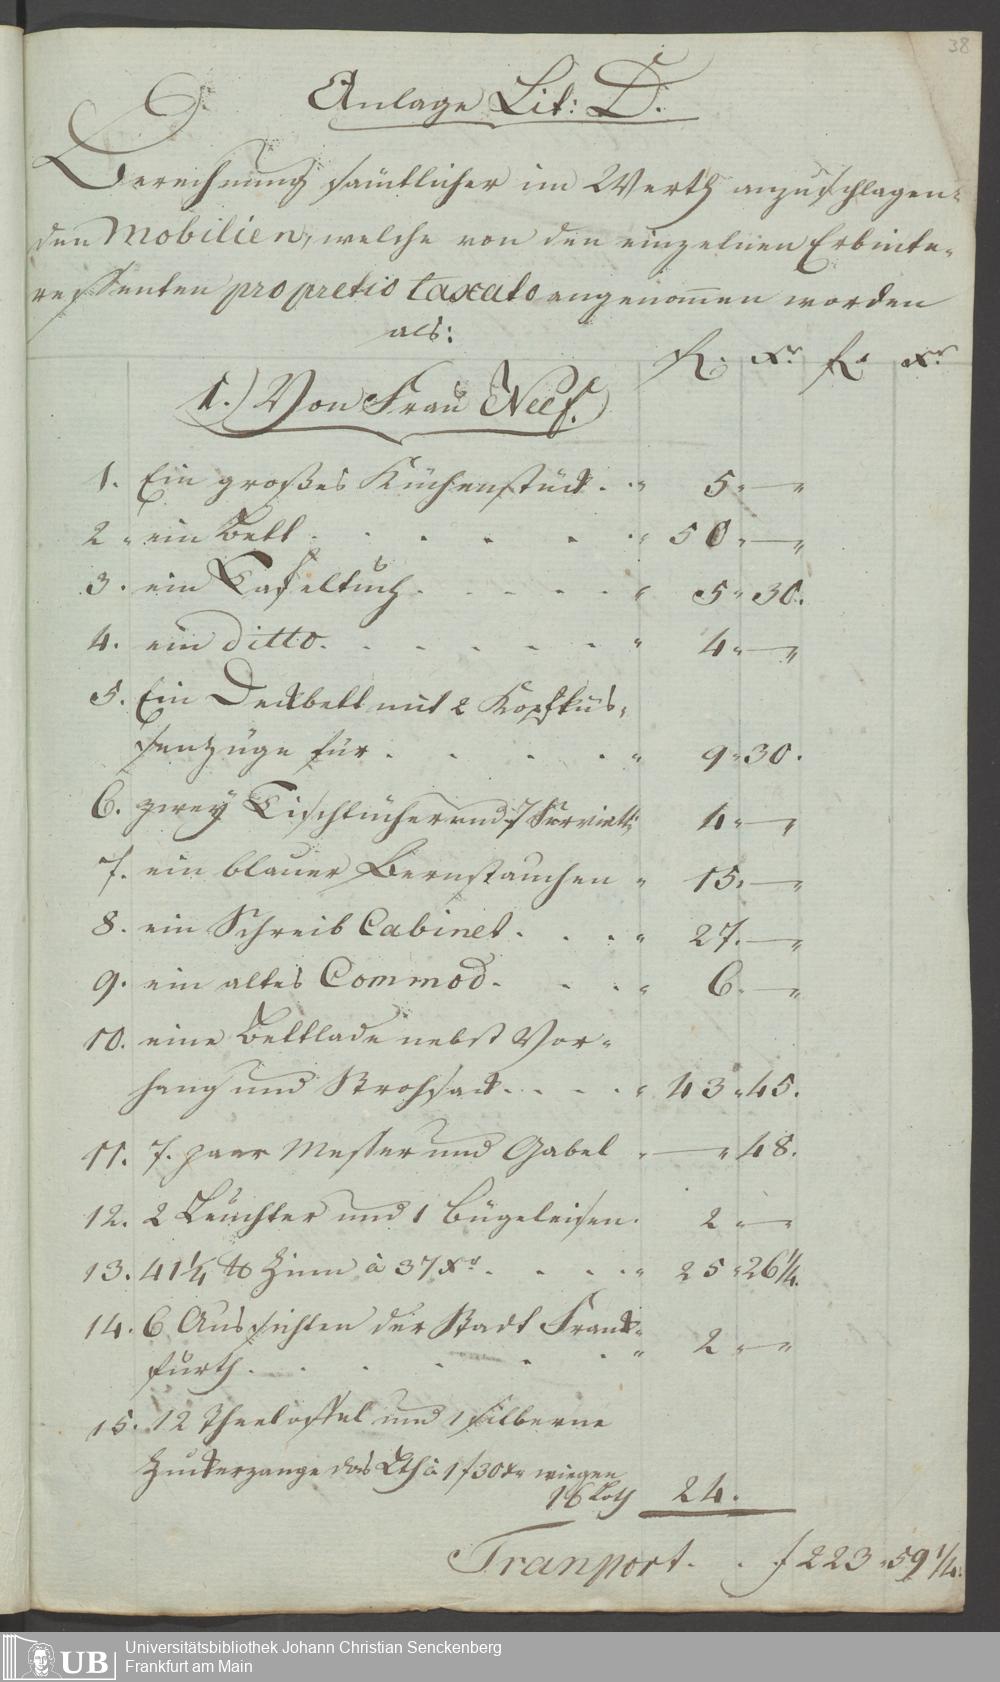 38
Anlage Lit: D.
Berechnung sämtlicher im Werth anzuschlagen-
den Mobilien, welche von den einzelnen Erbinte-
ressenten pro pretio taxato angenom̄en worden
als:
fl. Xr fl. Xr
1.) Von Frau Neef.
1. Ein großes Küchenstück . " 5. —"
2. ein Bett . . . . . " 50 " —"
3. ein Tafeltuch . . . . . " 5 " 30.
4. ein ditto . . . . . . " 4 " —"
5. Ein Deckbett mit 2 Kopfküs-
senzüge für . . . . " 9 " 30.
6. zwey Tischtücher und 7 Serviett: 4 " —"
7. ein blauer " 15. —"
8. ein Schreib Cabinet . . . " 27. —"
9. ein altes Commod . . . " 6. —"
10. eine Bettlade nebst Vor-
hang und Strohsack . . . " 43 " 45.
11. 7. paar Messer und Gabel " — " 48.
12. 2 Leuchter und 1 Bügeleisen. 2 " —"
13. 41 1/4 ℔ Zinn à 37 Xr . . . . " 25 " 26 1/4.
14. 6 Aussichten der Stadt Frank-
furth . . . . . " 2 " —"
15. 12 Theelöffel und 1 silberne
Zuckerzange das Lth à 1 f 30 Xr wiegen
16 Loth 24.
Tranport . . f 223 " 59 1/4.
UB
Universitätsbibliothek Johann Christian Senckenberg
Frankfurt am Main